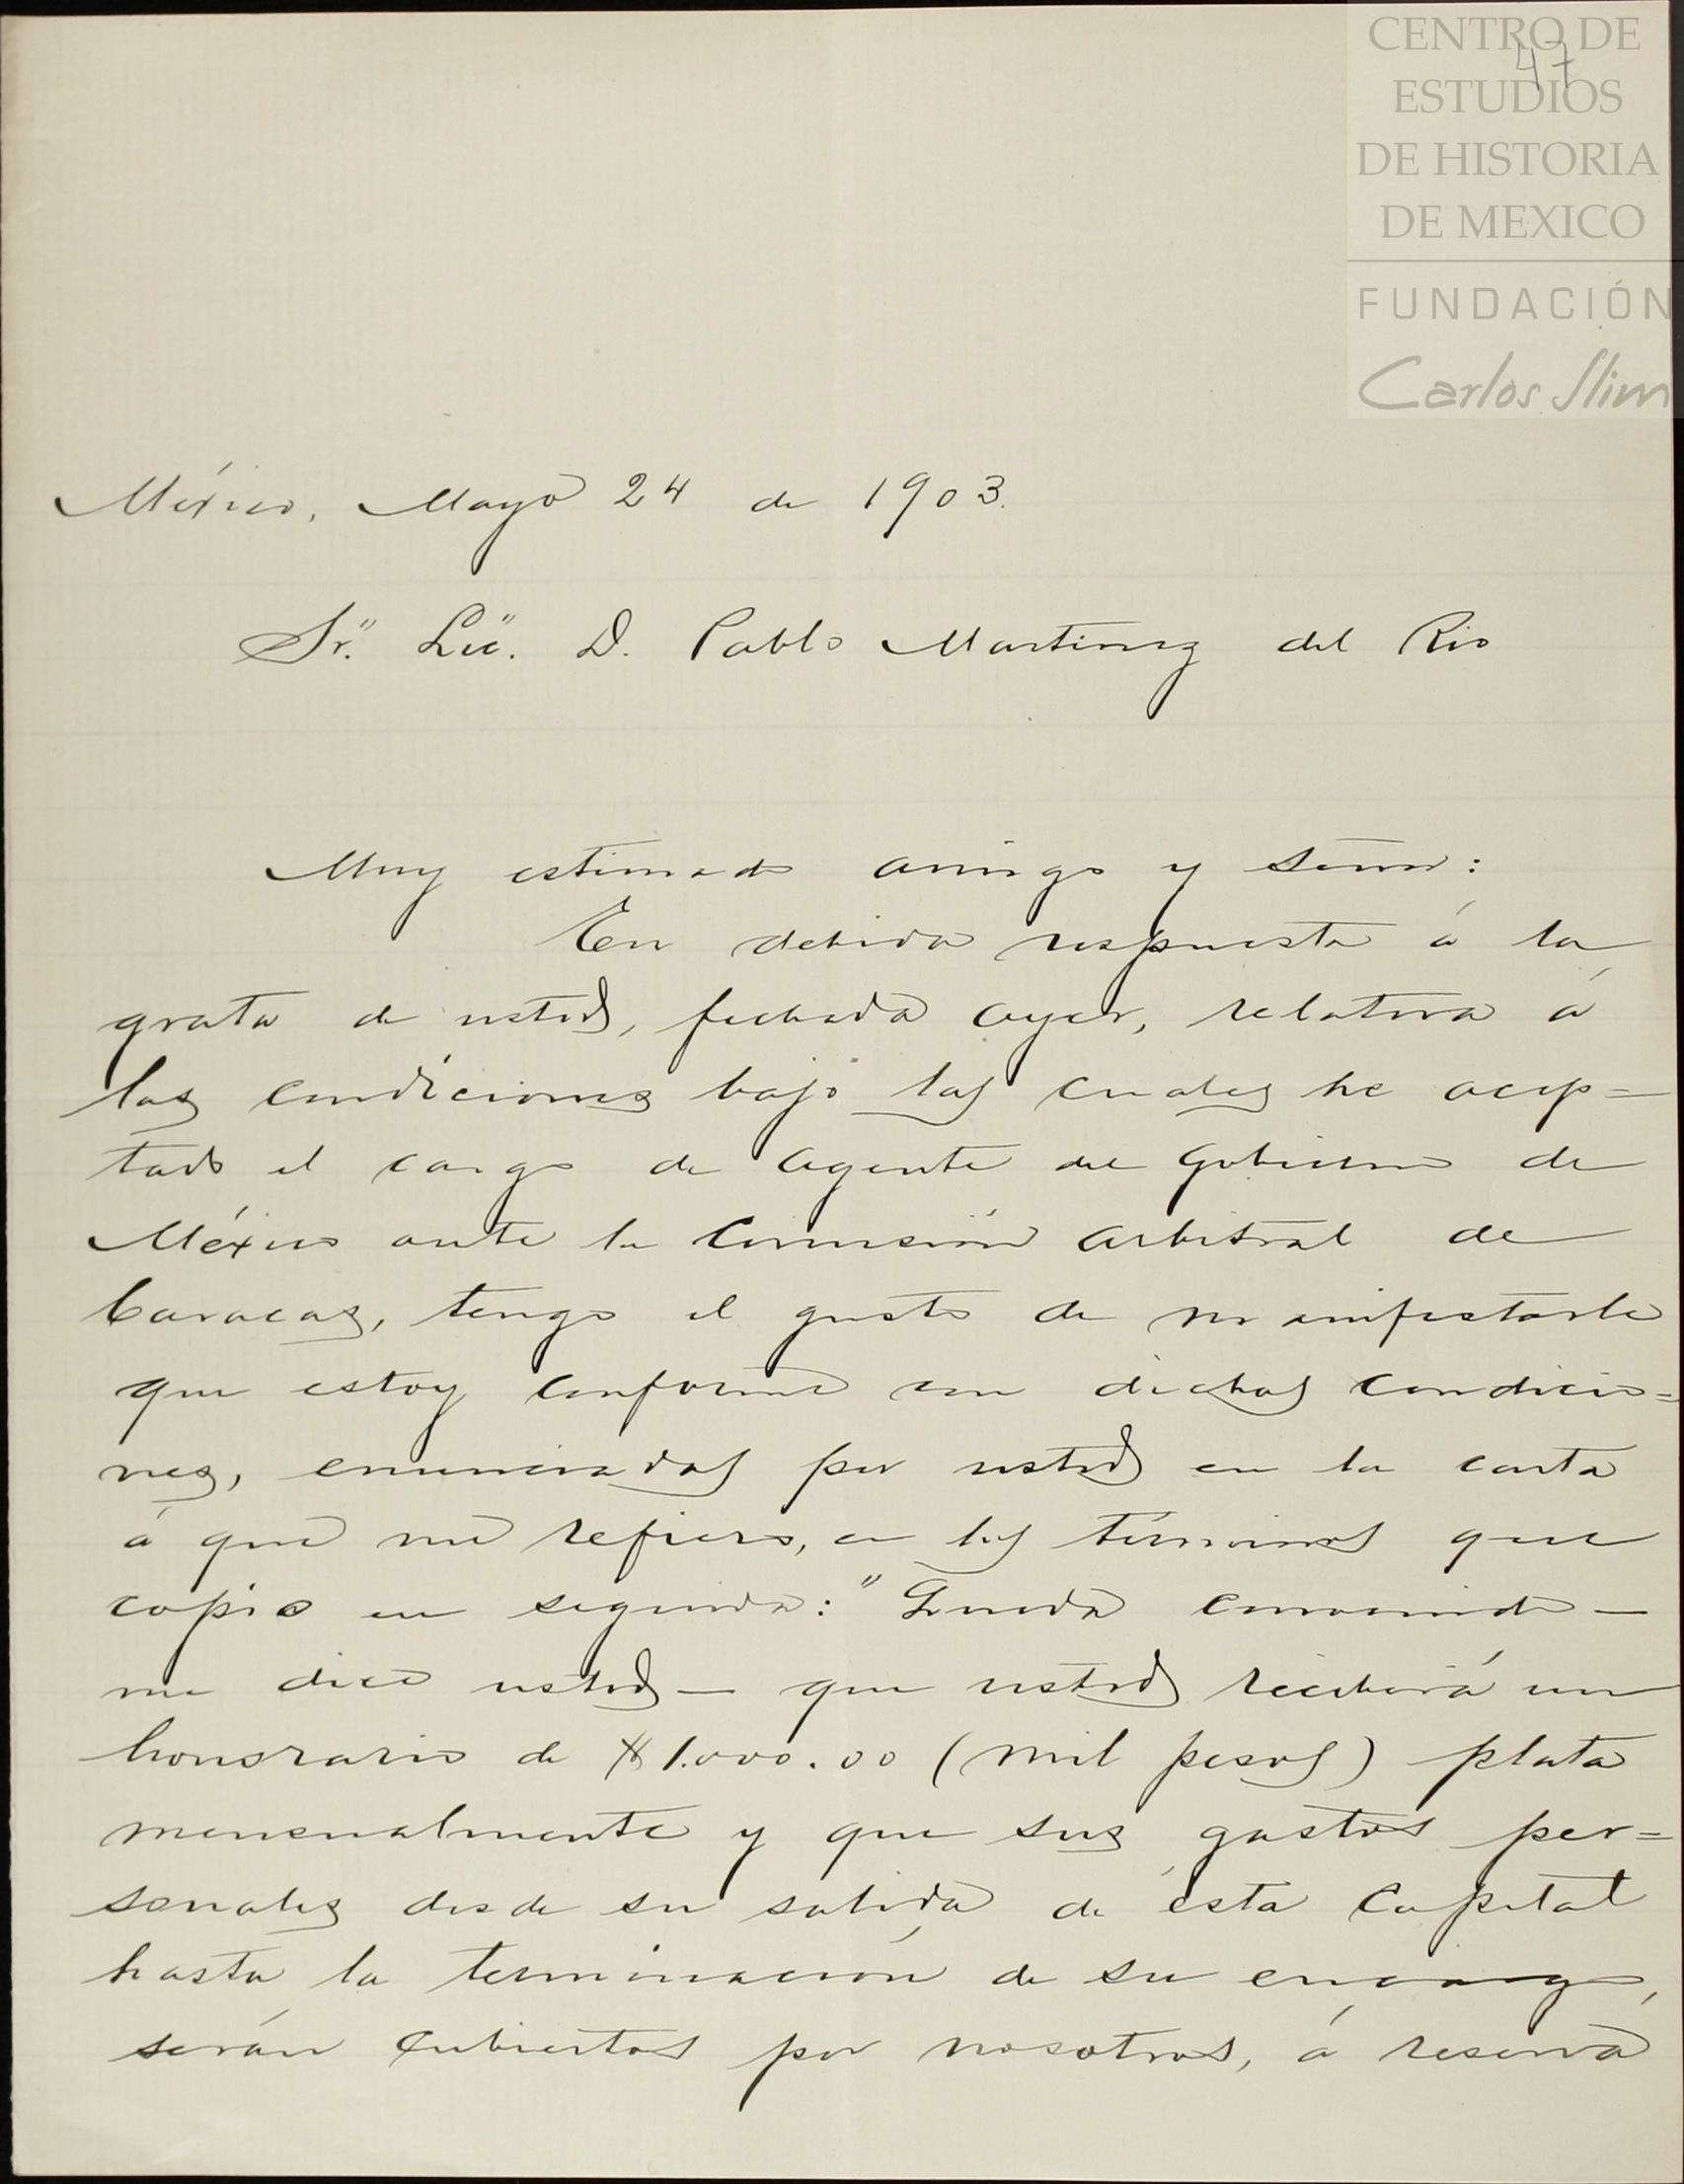 CENTRO DE
ESTUDIOS
DE HISTORIA
DE MEXICO
FUNDACIÓN
Carlos Slim
47
México, Mayo 24 de 1903.
Sr. Lic. D. Pablo Martinez del Rio
Muy estimado amigo y señor:
En debida respuesta á la
grata de usted, fechada ayer, relativa á
las condiciones bajo las cuales he acep=
tado el cargo de Agente del Gobierno de
México ante la Comisión Arbitral de
Caracas, tengo el gusto de manifestarle
que estoy conforme con dichas condicio=
nes, enunciadas por usted en la carta
á que me refiero, en los términos que
copio en seguida: "Queda convenido —
me dice usted — que usted recibirá un
honorario de $1.000.00 (mil pesos) plata
mensualmente y que sus gastos per=
sonales desde su salida de ésta Capital
hasta la terminación de su encargo,
serán cubiertos por nosotros, á reserva